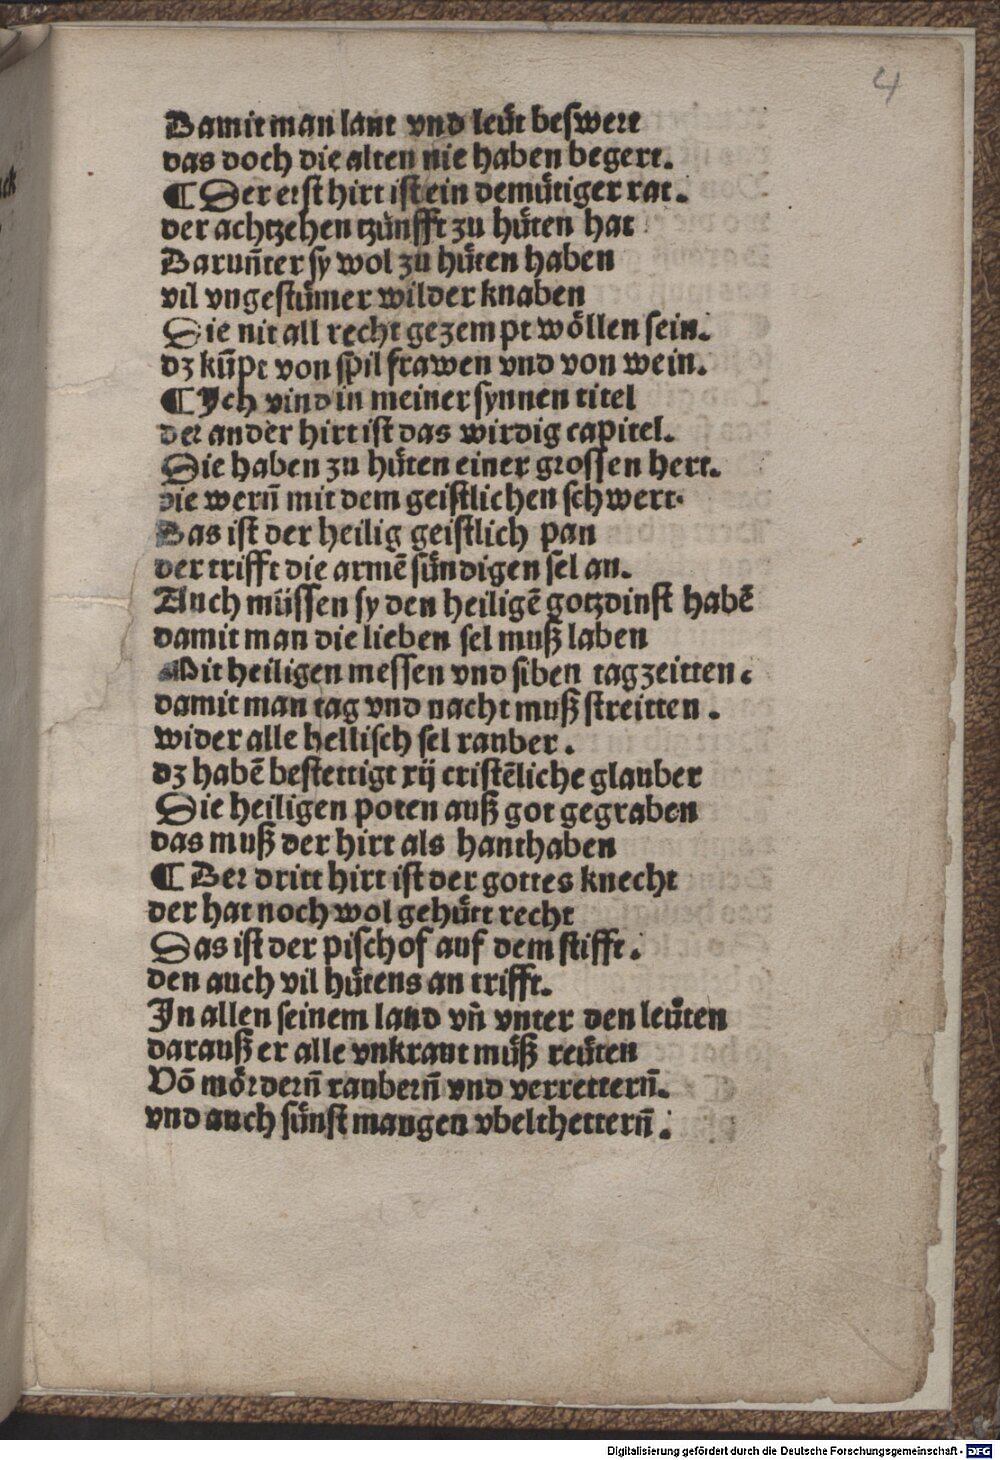 4
Damit man lant vnd leüt beswert
das doch die alten nie haben begert.
¶ Der erst hirt ist ein demütiger rat.
der achtzehen tzünfft zu hüten hat
Daruñter sy wol zu hüten haben
vil vngestümer wilder knaben
Die nit all recht gezempt wöllen sein.
dz kũpt von spil frawen vnd von wein.
¶ Ich vind in meiner synnen titel
der ander hirt ist das wirdig capitel.
Die haben zu hüten einer grossen hert.
die werñ mit dem geistlichen schwert.
Das ist der heilig geistlich pan
der trifft die armē sündigen sel an.
Auch müssen sy den heiligē gotzdinst habē
damit man die lieben sel muß laben
Mit heiligen messen vnd siben tagzeitten.
damit man tag vnd nacht muß streitten.
wider alle hellisch sel rauber.
dz habē bestettigt xij cristēliche glauber
Die heiligen poten auß got gegraben
das muß der hirt als hanthaben
¶ Der dritt hirt ist der gottes knecht
der hat noch wol gehütt recht
Das ist der pischof auf dem stifft.
den auch vil hütens an trifft.
In allen seinem land vñ vnter den leüten
darauß er alle vnkraut müß reüten
Võ mörderñ rauberñ vnd verretterñ.
vnd auch sünst mangen vbelthetterñ.
Digitalisierung gefördert durch die Deutsche Forschungsgemeinschaft - DFG